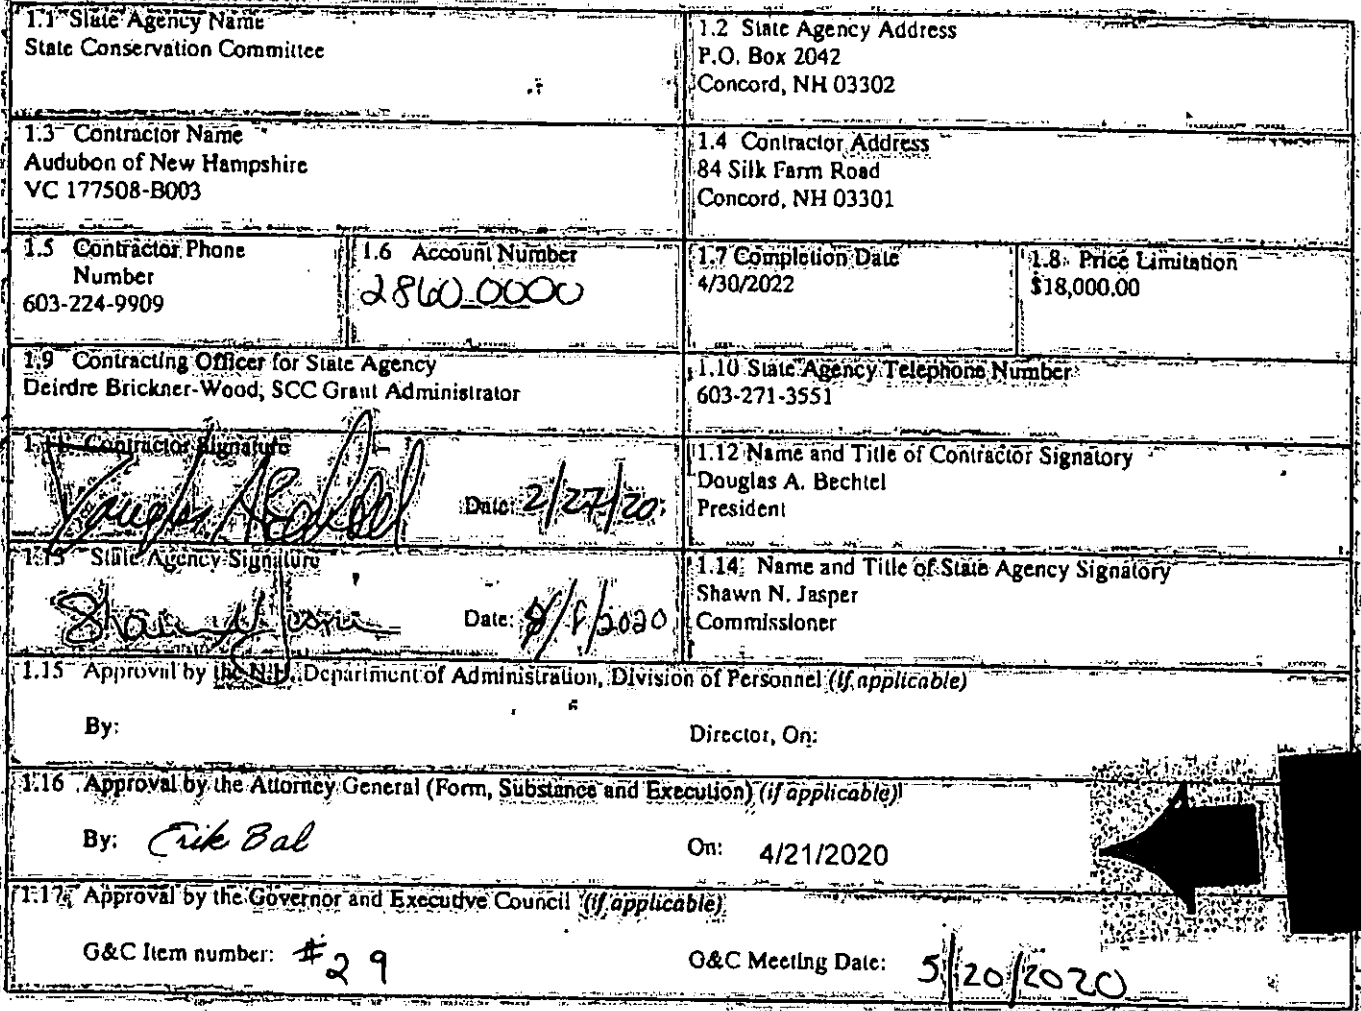 1.1 State Agency Name
State Conservation Committee
1.2 State Agency Address
P.O. Box 2042
Concord, NH 03302
1.3 Contractor Name
Audubon of New Hampshire
VC 177508-B003
1.4 Contractor Address
84 Silk Farm Road
Concord, NH 03301
1.5 Contractor Phone
Number
603-224-9909
1.6 Account Number
2860 0000
1.7 Completion Date
4/30/2022
1.8 Price Limitation
$18,000.00
1.9 Contracting Officer for State Agency
Deirdre Brickner-Wood, SCC Grant Administrator
1.10 State Agency Telephone Number
603-271-3551
Contractor Signature
Date: 2/27/20
1.12 Name and Title of Contractor Signatory
Douglas A. Bechtel
President
1.13 State Agency Signature
Date: /2020
1.14 Name and Title of State Agency Signatory
Shawn N. Jasper
Commissioner
1.15 Approval by the N.H. Department of Administration, Division of Personnel (if applicable)
By:
Director, On:
1.16 Approval by the Attorney General (Form, Substance and Execution) (if applicable)
By: Erik Bal
On: 4/21/2020
1.17 Approval by the Governor and Executive Council (if applicable)
G&C Item number: #29
G&C Meeting Date: 5/20/2020